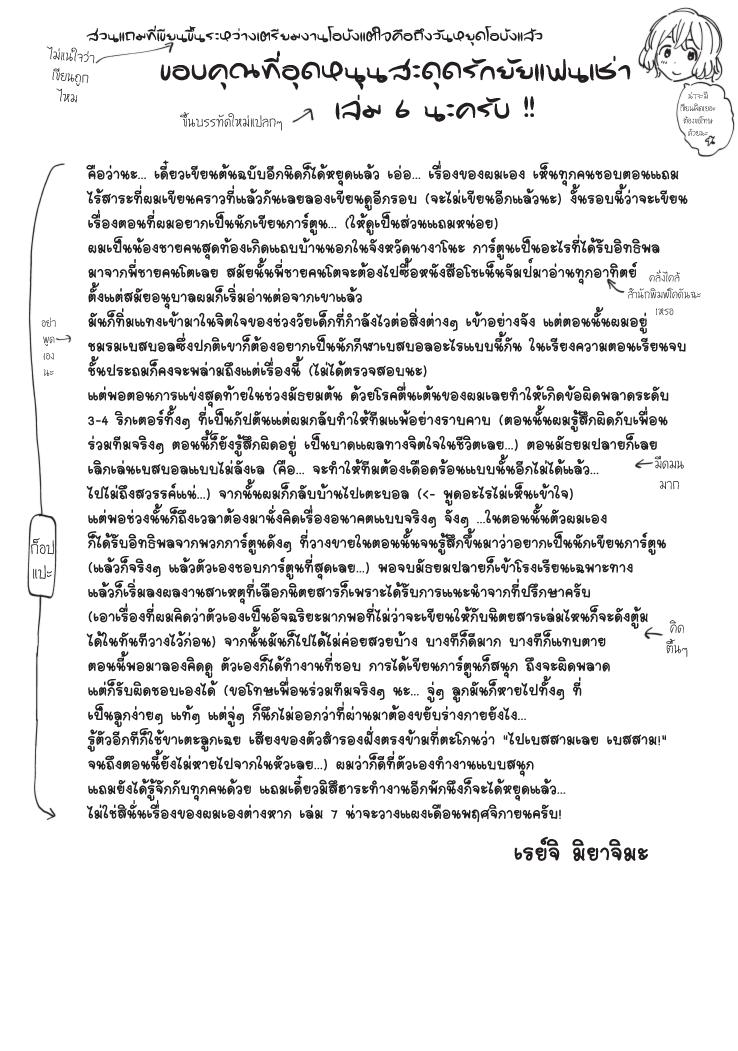 ส่วนแถมที่เขียนขึ้นระหว่างเตรียมงานโอบ้งแต่ใจคือถึงวันหยุดโอบ้งแล้ว
ไม่แน่ใจว่า
เขียนถูก
ไหม
ขอบคุณที่อุดหนุนสะดุดรักยัยแฟนเช่า
เล่ม 6 นะครับ !!
ขึ้นบรรทัดใหม่แปลกๆ
น่าจะมี
เขียนผิดเยอะ
ต้องขอโทษ
ด้วยนะ
คือว่านะ... เดี๋ยวเขียนต้นฉบับอีกนิดก็ได้หยุดแล้ว เอ่อ... เรื่องของผมเอง เห็นทุกคนชอบตอนแถม
ไร้สาระที่ผมเขียนคราวที่แล้วกันเลยลองเขียนดูอีกรอบ (จะไม่เขียนอีกแล้วนะ) งั้นรอบนี้ว่าจะเขียน
เรื่องตอนที่ผมอยากเป็นนักเขียนการ์ตูน... (ให้ดูเป็นส่วนแถมหน่อย)
ผมเป็นน้องชายคนสุดท้องเกิดแถบบ้านนอกในจังหวัดนางาโนะ การ์ตูนเป็นอะไรที่ได้รับอิทธิพล
มาจากพี่ชายคนโตเลย สมัยนั้นพี่ชายคนโตจะต้องไปซื้อหนังสือโชเน็นจัมป์มาอ่านทุกอาทิตย์
ตั้งแต่สมัยอนุบาลผมก็เริ่มอ่านต่อจากเขาแล้ว
คลั่งไคล้
สำนักพิมพ์โคดันฉะ
เหรอ
มันก็ทิ่มแทงเข้ามาในจิตใจของช่วงวัยเด็กที่กำลังไวต่อสิ่งต่างๆ เข้าอย่างจัง แต่ตอนนั้นผมอยู่
ชมรมเบสบอลซึ่งปกติเขาก็ต้องอยากเป็นนักกีฬาเบสบอลอะไรแบบนี้กัน ในเรียงความตอนเรียนจบ
ชั้นประถมก็คงจะพล่ามถึงแต่เรื่องนี้ (ไม่ได้ตรวจสอบนะ)
อย่า
พูด
เอง
นะ
แต่พอตอนการแข่งสุดท้ายในช่วงมัธยมต้น ด้วยโรคตื่นเต้นของผมเลยทำให้เกิดข้อผิดพลาดระดับ
3-4 ริกเตอร์ทั้งๆ ที่เป็นกัปตันแต่ผมกลับทำให้ทีมแพ้อย่างราบคาบ (ตอนนั้นผมรู้สึกผิดกับเพื่อน
ร่วมทีมจริงๆ ตอนนี้ก็ยังรู้สึกผิดอยู่ เป็นบาดแผลทางจิตใจในชีวิตเลย...) ตอนมัธยมปลายก็เลย
เลิกเล่นเบสบอลแบบไม่ลังเล (คือ... จะทำให้ทีมต้องเดือดร้อนแบบนั้นอีกไม่ได้แล้ว...
ไปไม่ถึงสวรรค์แน่...) จากนั้นผมก็กลับบ้านไปเตะบอล (<- พูดอะไรไม่เห็นเข้าใจ)
มืดมน
มาก
แต่พอช่วงนั้นก็ถึงเวลาต้องมานั่งคิดเรื่องอนาคตแบบจริงๆ จังๆ ...ในตอนนั้นตัวผมเอง
ก็ได้รับอิทธิพลจากพวกการ์ตูนดังๆ ที่วางขายในตอนนั้นจนรู้สึกขึ้นมาว่าอยากเป็นนักเขียนการ์ตูน
(แล้วก็จริงๆ แล้วตัวเองชอบการ์ตูนที่สุดเลย...) พอจบมัธยมปลายก็เข้าโรงเรียนเฉพาะทาง
แล้วก็เริ่มลงผลงานสาเหตุที่เลือกนิตยสารก็เพราะได้รับการแนะนำจากที่ปรึกษาครับ
ก็อป
แปะ
(เอาเรื่องที่ผมคิดว่าตัวเองเป็นอัจฉริยะมากพอที่ไม่ว่าจะเขียนให้กับนิตยสารเล่มไหนก็จะดังตู้ม
ได้ในทันทีวางไว้ก่อน) จากนั้นมันก็ไปได้ไม่ค่อยสวยบ้าง บางทีก็ดีมาก บางทีก็แทบตาย
คิด
ตื้นๆ
ตอนนี้พอมาลองคิดดู ตัวเองก็ได้ทำงานที่ชอบ การได้เขียนการ์ตูนก็สนุก ถึงจะผิดพลาด
แต่ก็รับผิดชอบเองได้ (ขอโทษเพื่อนร่วมทีมจริงๆ นะ... จู่ๆ ลูกมันก็หายไปทั้งๆ ที่
เป็นลูกง่ายๆ แท้ๆ แต่จู่ๆ ก็นึกไม่ออกว่าที่ผ่านมาต้องขยับร่างกายยังไง...
รู้ตัวอีกทีก็ใช้ขาเตะลูกเฉย เสียงของตัวสำรองฝั่งตรงข้ามที่ตะโกนว่า "ไปเบสสามเลย เบสสาม!"
จนถึงตอนนี้ยังไม่หายไปจากในหัวเลย...) ผมว่าก็ดีที่ตัวเองทำงานแบบสนุก
แถมยังได้รู้จักกับทุกคนด้วย แถมเดี๋ยวมิสึฮาระทำงานอีกพักนึงก็จะได้หยุดแล้ว...
ไม่ใช่สินั่นเรื่องของผมเองต่างหาก เล่ม 7 น่าจะวางแผงเดือนพฤศจิกายนครับ!
เรย์จิ มิยาจิมะ